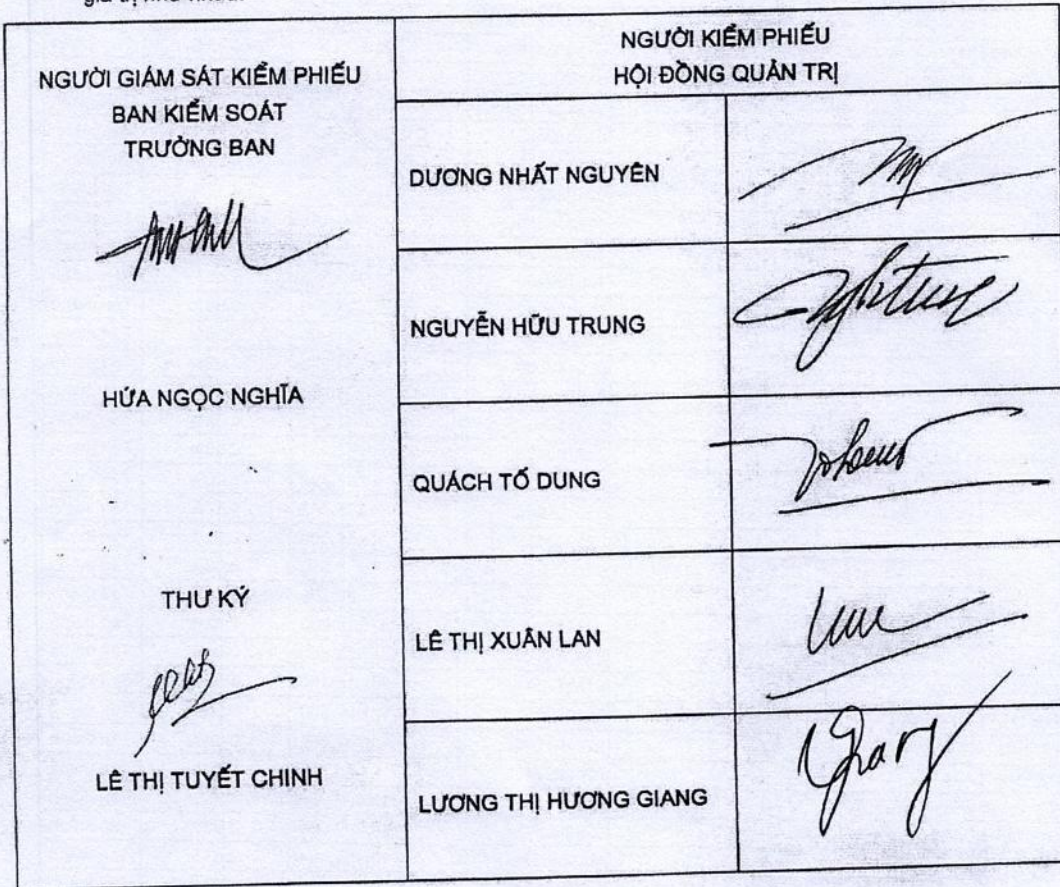 giá trị như nhau.
NGƯỜI GIÁM SÁT KIỂM PHIẾU
BAN KIỂM SOÁT
TRƯỞNG BAN
HỨA NGỌC NGHĨA
THƯ KÝ
LÊ THỊ TUYẾT CHINH
NGƯỜI KIỂM PHIẾU
HỘI ĐỒNG QUẢN TRỊ
DƯƠNG NHẤT NGUYÊN
NGUYỄN HỮU TRUNG
QUÁCH TỐ DUNG
LÊ THỊ XUÂN LAN
LƯƠNG THỊ HƯƠNG GIANG